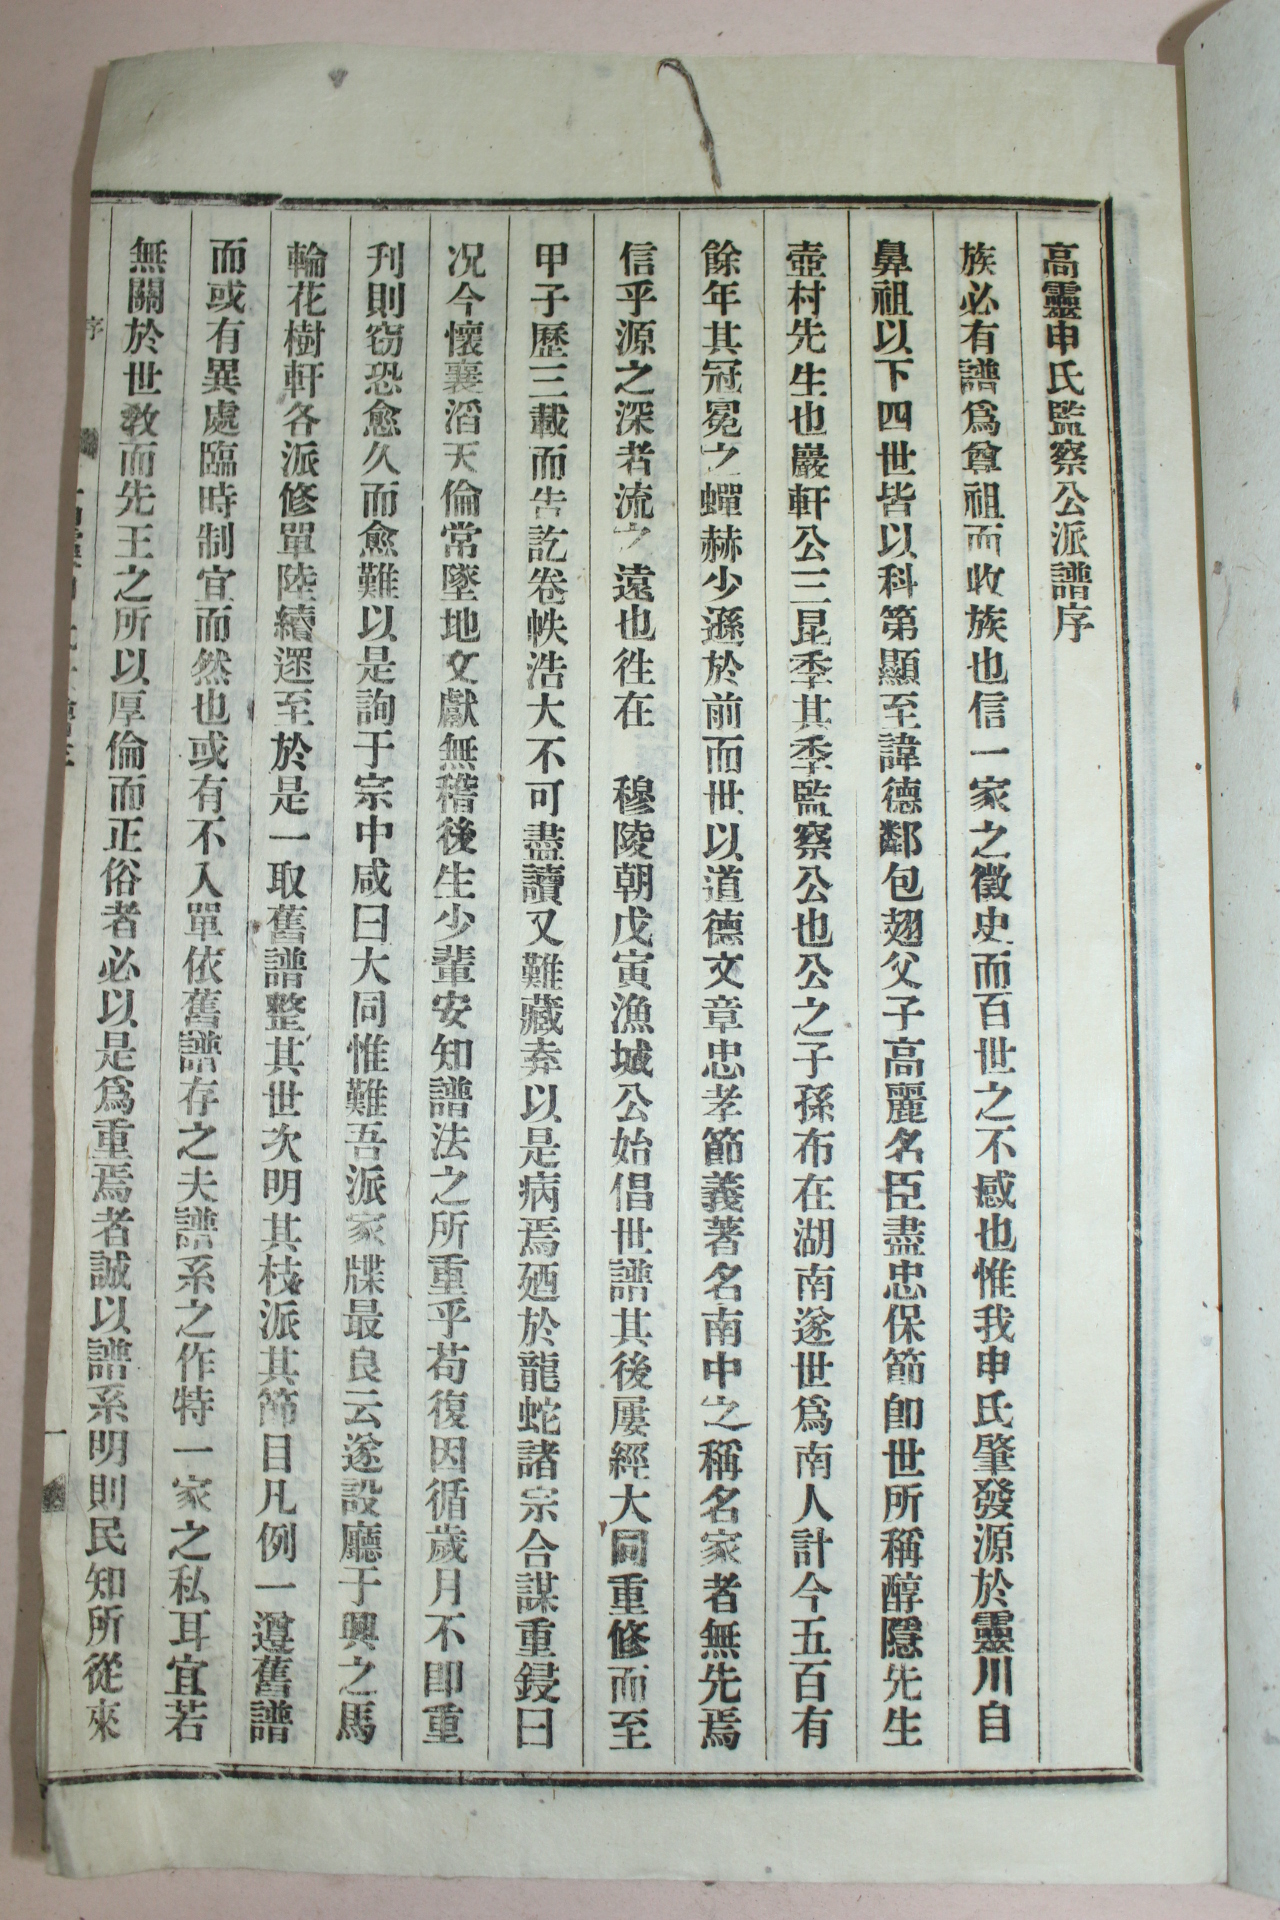 高靈申氏監察公派譜序
族必有譜爲尊祖而收族也信一家之徵史而百世之不惑也惟我申氏肇發源於靈川自
鼻祖以下四世皆以科第顯至諱德鄰包翅父子高麗名臣盡忠保節卽世所稱醇隱先生
壺村先生也巖軒公三昆季其季監察公也公之子孫布在湖南遂世爲南人計今五百有
餘年其冠冕之蟬赫少遜於前而世以道德文章忠孝節義著名南中之稱名家者無先焉
信乎源之深者流之遠也徃在 穆陵朝戊寅漁城公始倡世譜其後屢經大同重修而至
甲子歷三載而告訖卷帙浩大不可盡讀又難藏弆以是病焉廼於龍蛇諸宗合謀重鋟曰
况今懷襄滔天倫常墜地文獻無稽後生少輩安知譜法之所重乎苟復因循歲月不卽重
刋則窃恐愈久而愈難以是詢于宗中咸曰大同惟難吾派家牒最良云遂設廳于興之馬
輪花樹軒各派修單陸續遝至於是一取舊譜整其世次明其枝派其節目凡例一遵舊譜
而或有異處臨時制宜而然也或有不入單依舊譜存之夫譜系之作特一家之私耳宜若
無關於世敎而先王之所以厚倫而正俗者必以是爲重焉者誠以譜系明則民知所從來
序
一